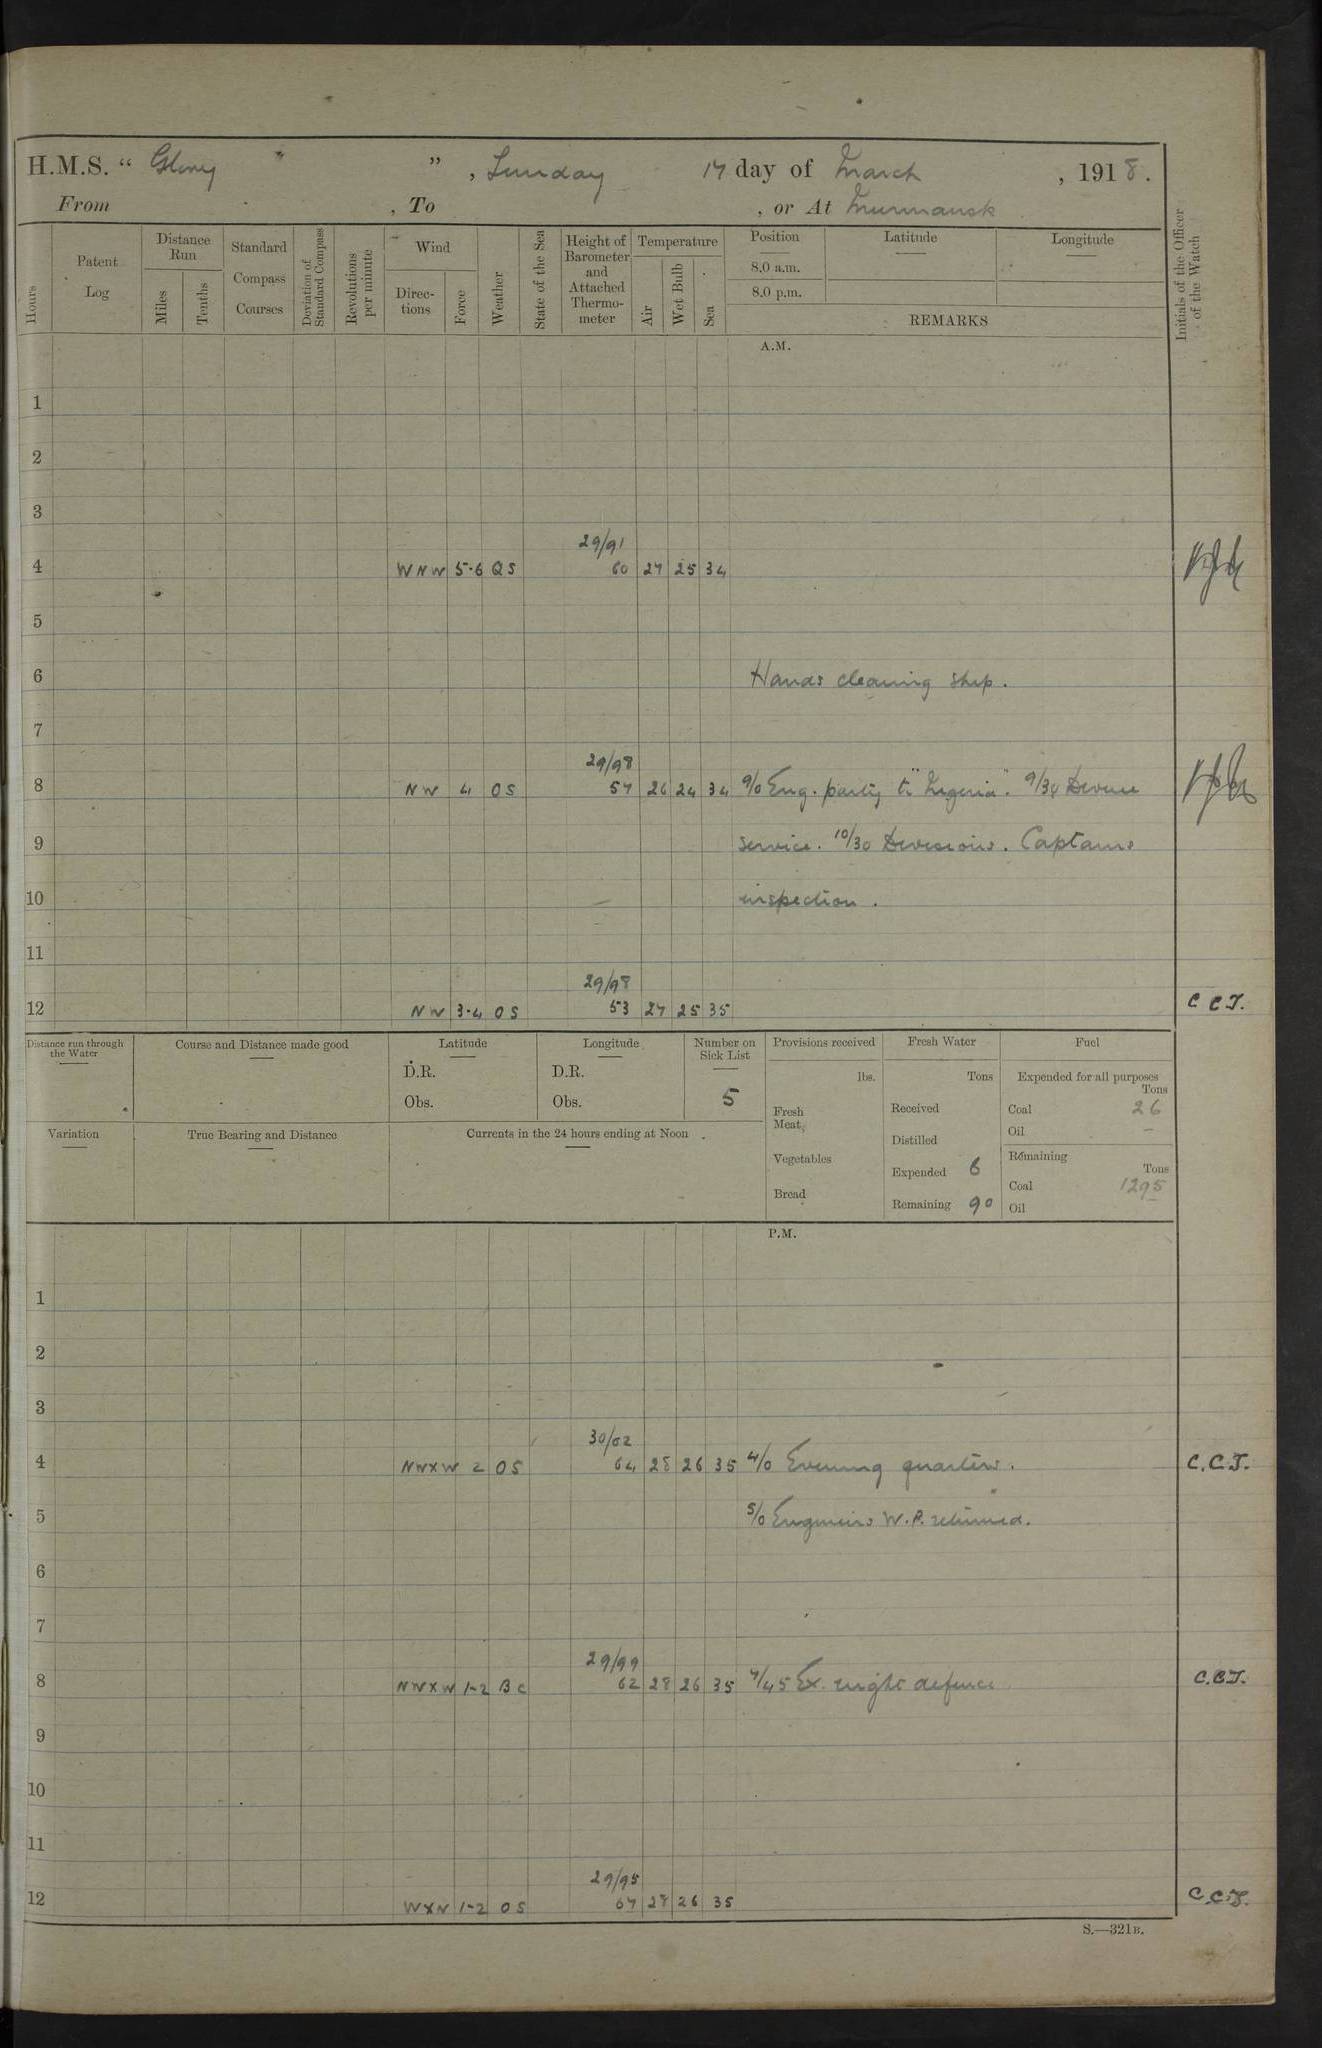 H.M.S. “ Glory ” , Sunday 17 day of March , 1918.
From , To , or At Murmansk
Hours
Patent Log
Distance Run
Miles
Tenths
Standard Compass Courses
Deviation of Standard Compass
Revolutions per minute
Wind
Directions
Force
Weather
State of the Sea
Height of Barometer and Attached Thermometer
Temperature
Air
Wet Bulb
Sea
Position
8.0 a.m.
8.0 p.m.
Latitude
Longitude
REMARKS
Initials of the Officer of the Watch
A.M.
1
2
3
29/91
4 WNW 5-6 QS 60 27 25 34
5
6 Hands cleaning ship.
7
29/98
8 NW 4 OS 57 26 24 34 9/0 Eng. party to "Nigeria". 9/30 Divine
9 service. 10/30 Divisions. Captains
10 inspection.
11
29/98
12 NW 3-4 OS 53 27 25 35 C C T.
Distance run through the Water
Course and Distance made good
Latitude
D.R.
Obs.
Longitude
D.R.
Obs.
Number on Sick List
5
Provisions received
lbs.
Fresh Meat
Vegetables
Bread
Fresh Water
Tons
Received
Distilled
Expended 6
Remaining 90
Fuel
Expended for all purposes
Tons
Coal 26
Oil –
Remaining
Tons
Coal 1295
Oil
Variation
True Bearing and Distance
Currents in the 24 hours ending at Noon
P.M.
1
2
3
30/02
4 NWXW 2 OS 64 28 26 35 4/0 Evening quarters. C.C.T.
5 5/0 Engineers W.P. returned.
6
7
29/99
8 NWXW 1-2 BC 62 28 26 35 7/45 Ex. night defence C.C.T.
9
10
11
29/95
12 WXN 1-2 OS 67 28 26 35 C.C.T.
S.—321B.